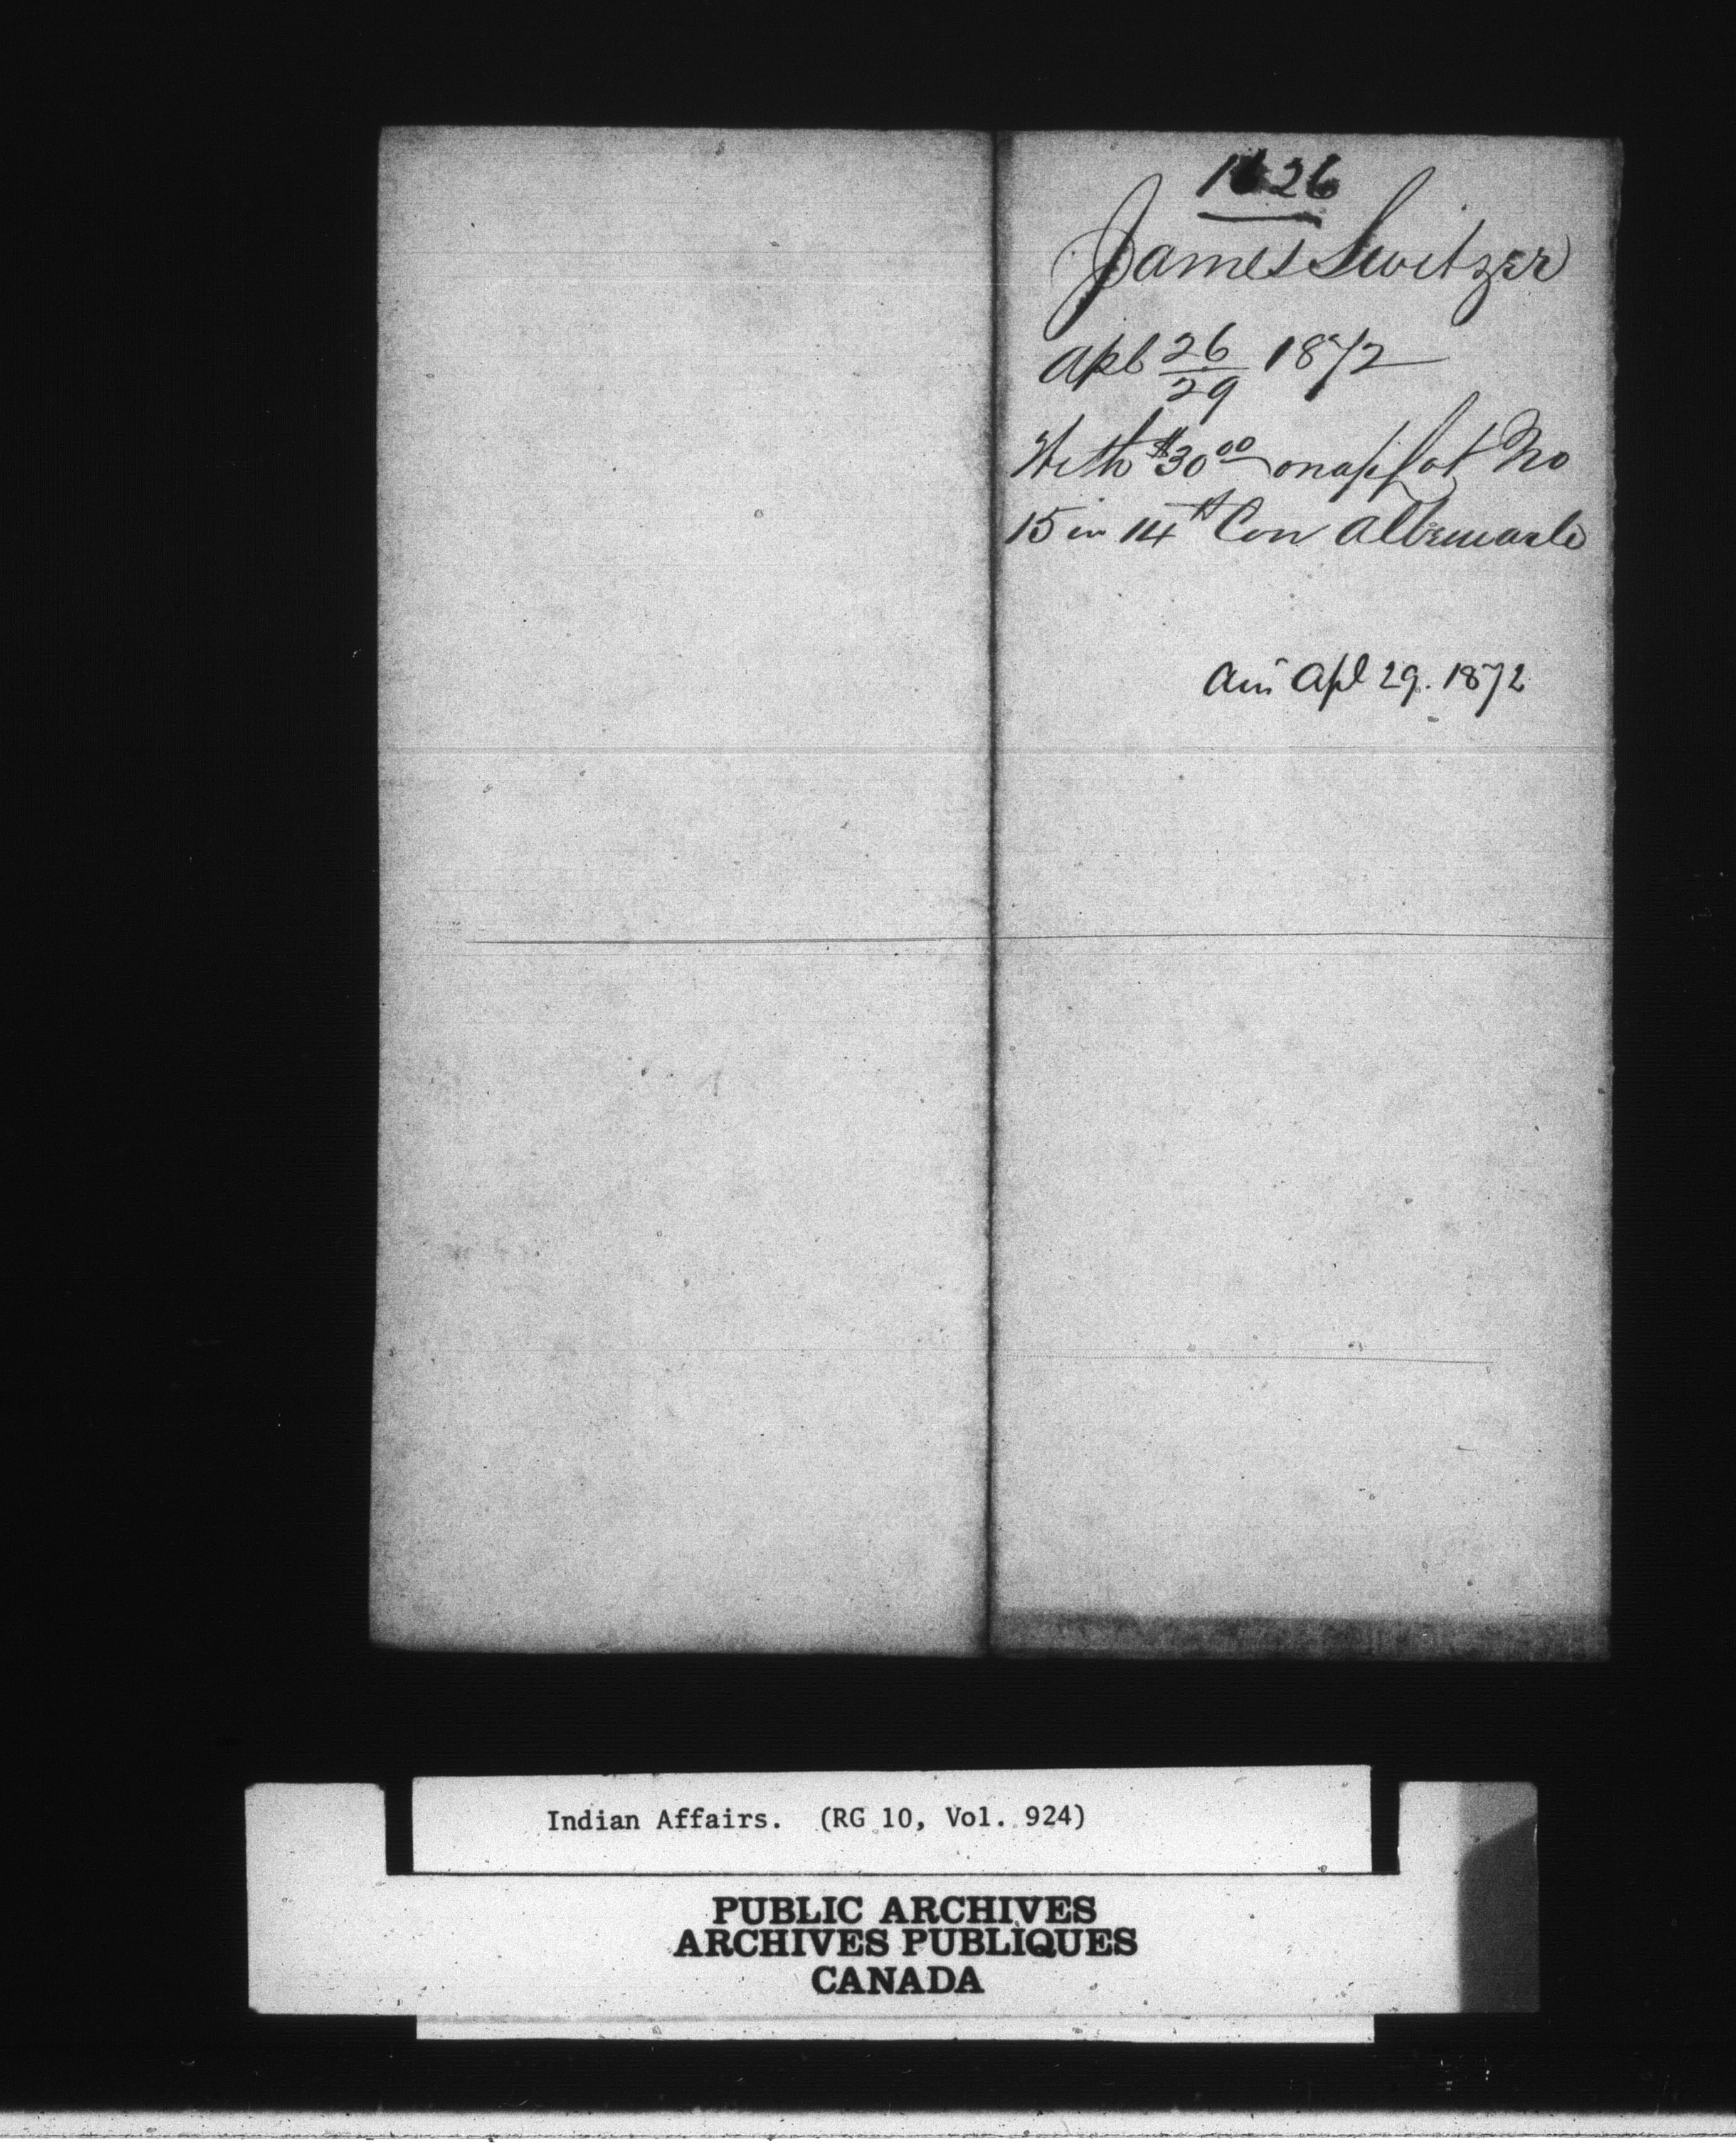 1626
James Switzer
Apl 26/29 1872
With $30.00 on a/c Lot No
15 in 14th Con Albemarle
Apl 29. 1872
Indian Affairs. (RG 10, Vol. 924)
PUBLIC ARCHIVES
ARCHIVES PUBLIQUES
CANADA